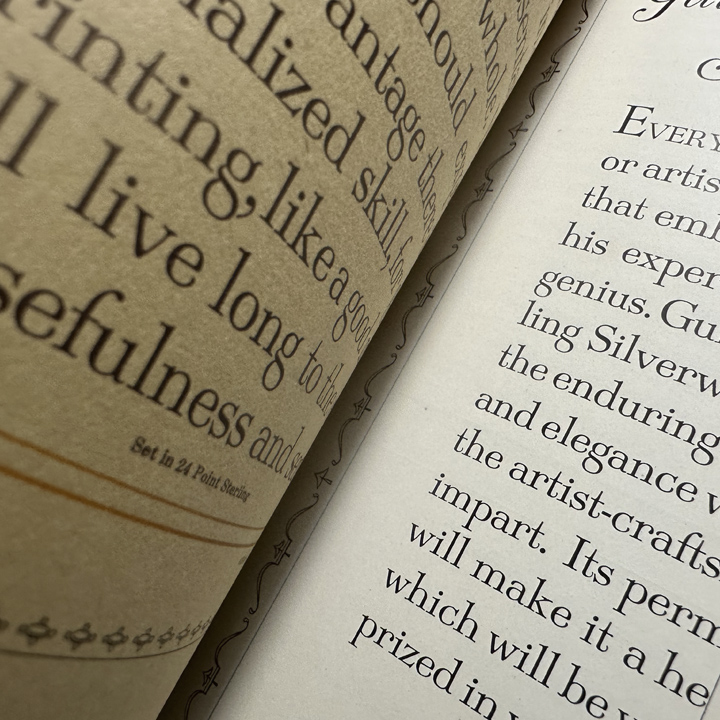 should
whole
antage there
ialized skill, for
rinting, like a good
ll live long to the
sefulness and
Set in 24 Point Sterling
EVERY
or artis
that emb
his exper
genius. Gui
ling Silverw
the enduring
and elegance w
the artist-crafts
impart. Its perm
will make it a he
which will be
prized in